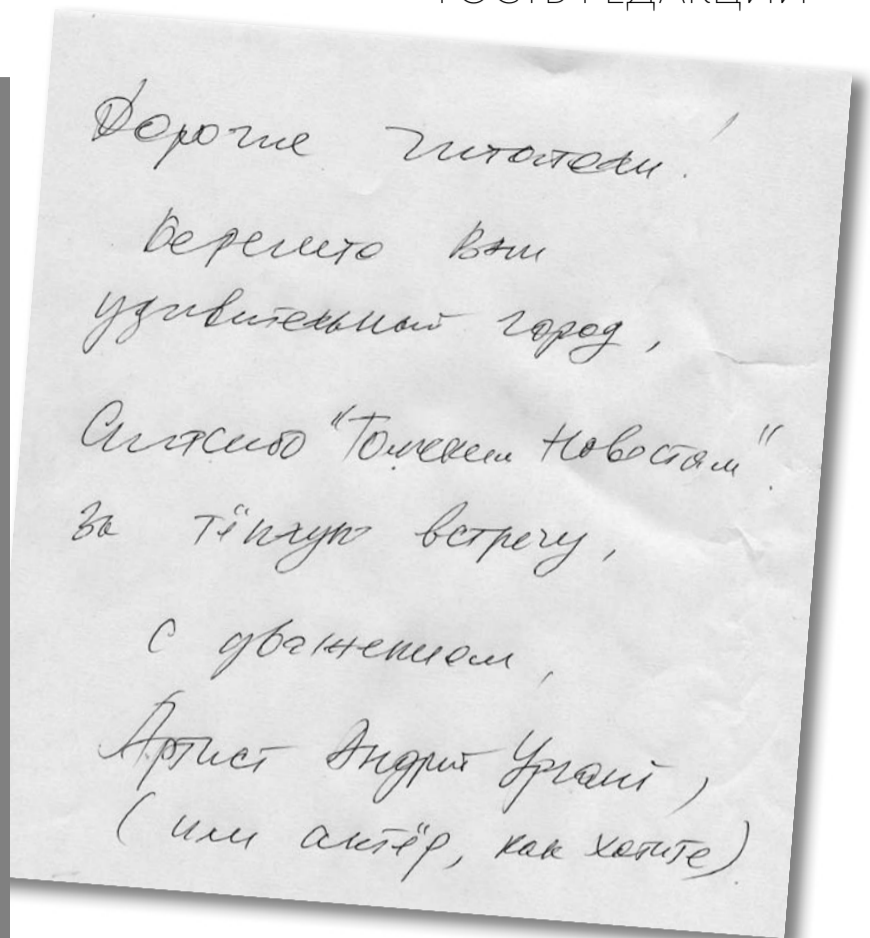 ГОСТЬ РЕДАКЦИИ
Дорогие читатели!
Берегите Ваш
удивительный город,
Спасибо "Томским Новостям".
за тёплую встречу,
с уважением,
Артист Андрей Ургант,
(или актёр, как хотите)